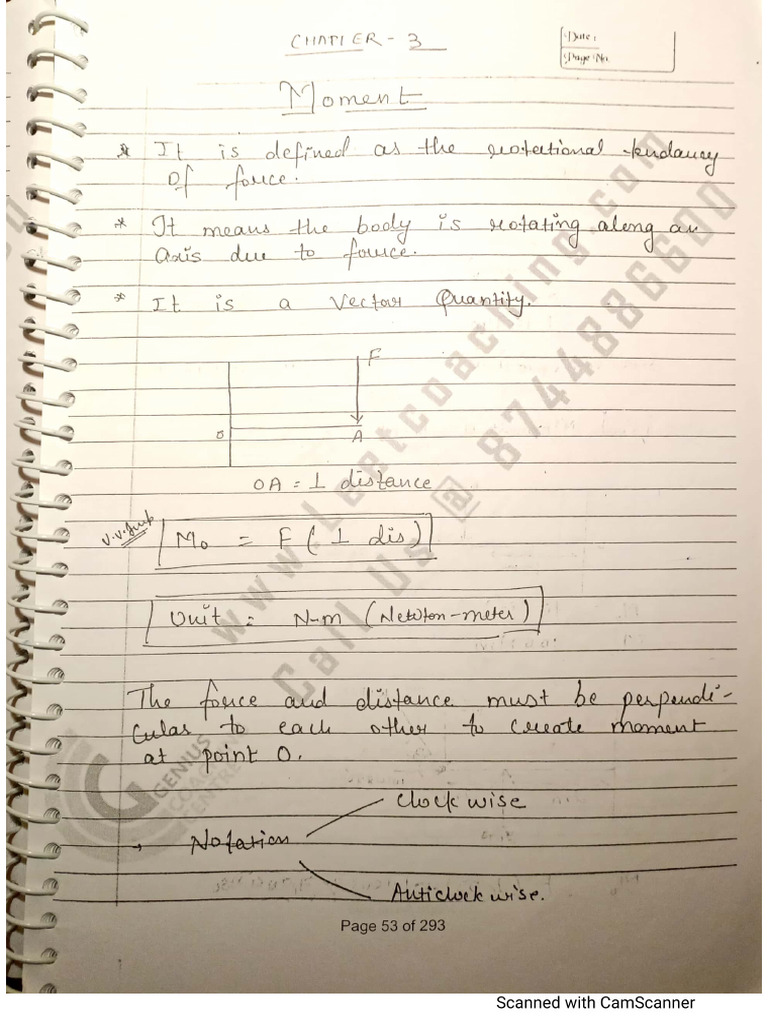 CHAPTER - 3
Date:
Page No.
Moment
* It is defined as the rotational tendancy
Of force.
* It means the body is rotating along an
axis due to force.
* It is a Vector Quantity.
F
O
A
OA = ⊥ distance
V.V.Imp
Mo = F (⊥ dis)
Unit = N-m (Newton-meter)
The force and distance must be perpendi-
cular to each other to create moment
at point O.
→ Notation
Clock wise
Anticlock wise.
www.Leetcoaching.com
Call Us @ 8744886600
GENIUS
COACHING
CENTRE
Page 53 of 293
Scanned with CamScanner